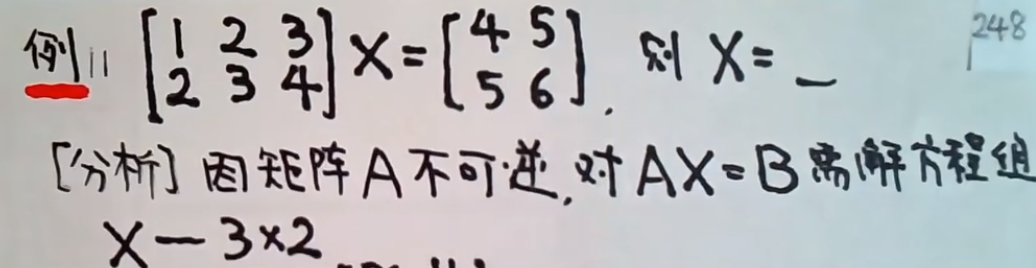 例11 [1 2 3 2 3 4] X = [4 5 5 6], 则 X = _
248
[分析] 因矩阵A不可逆, 对AX=B需解方程组
X — 3×2